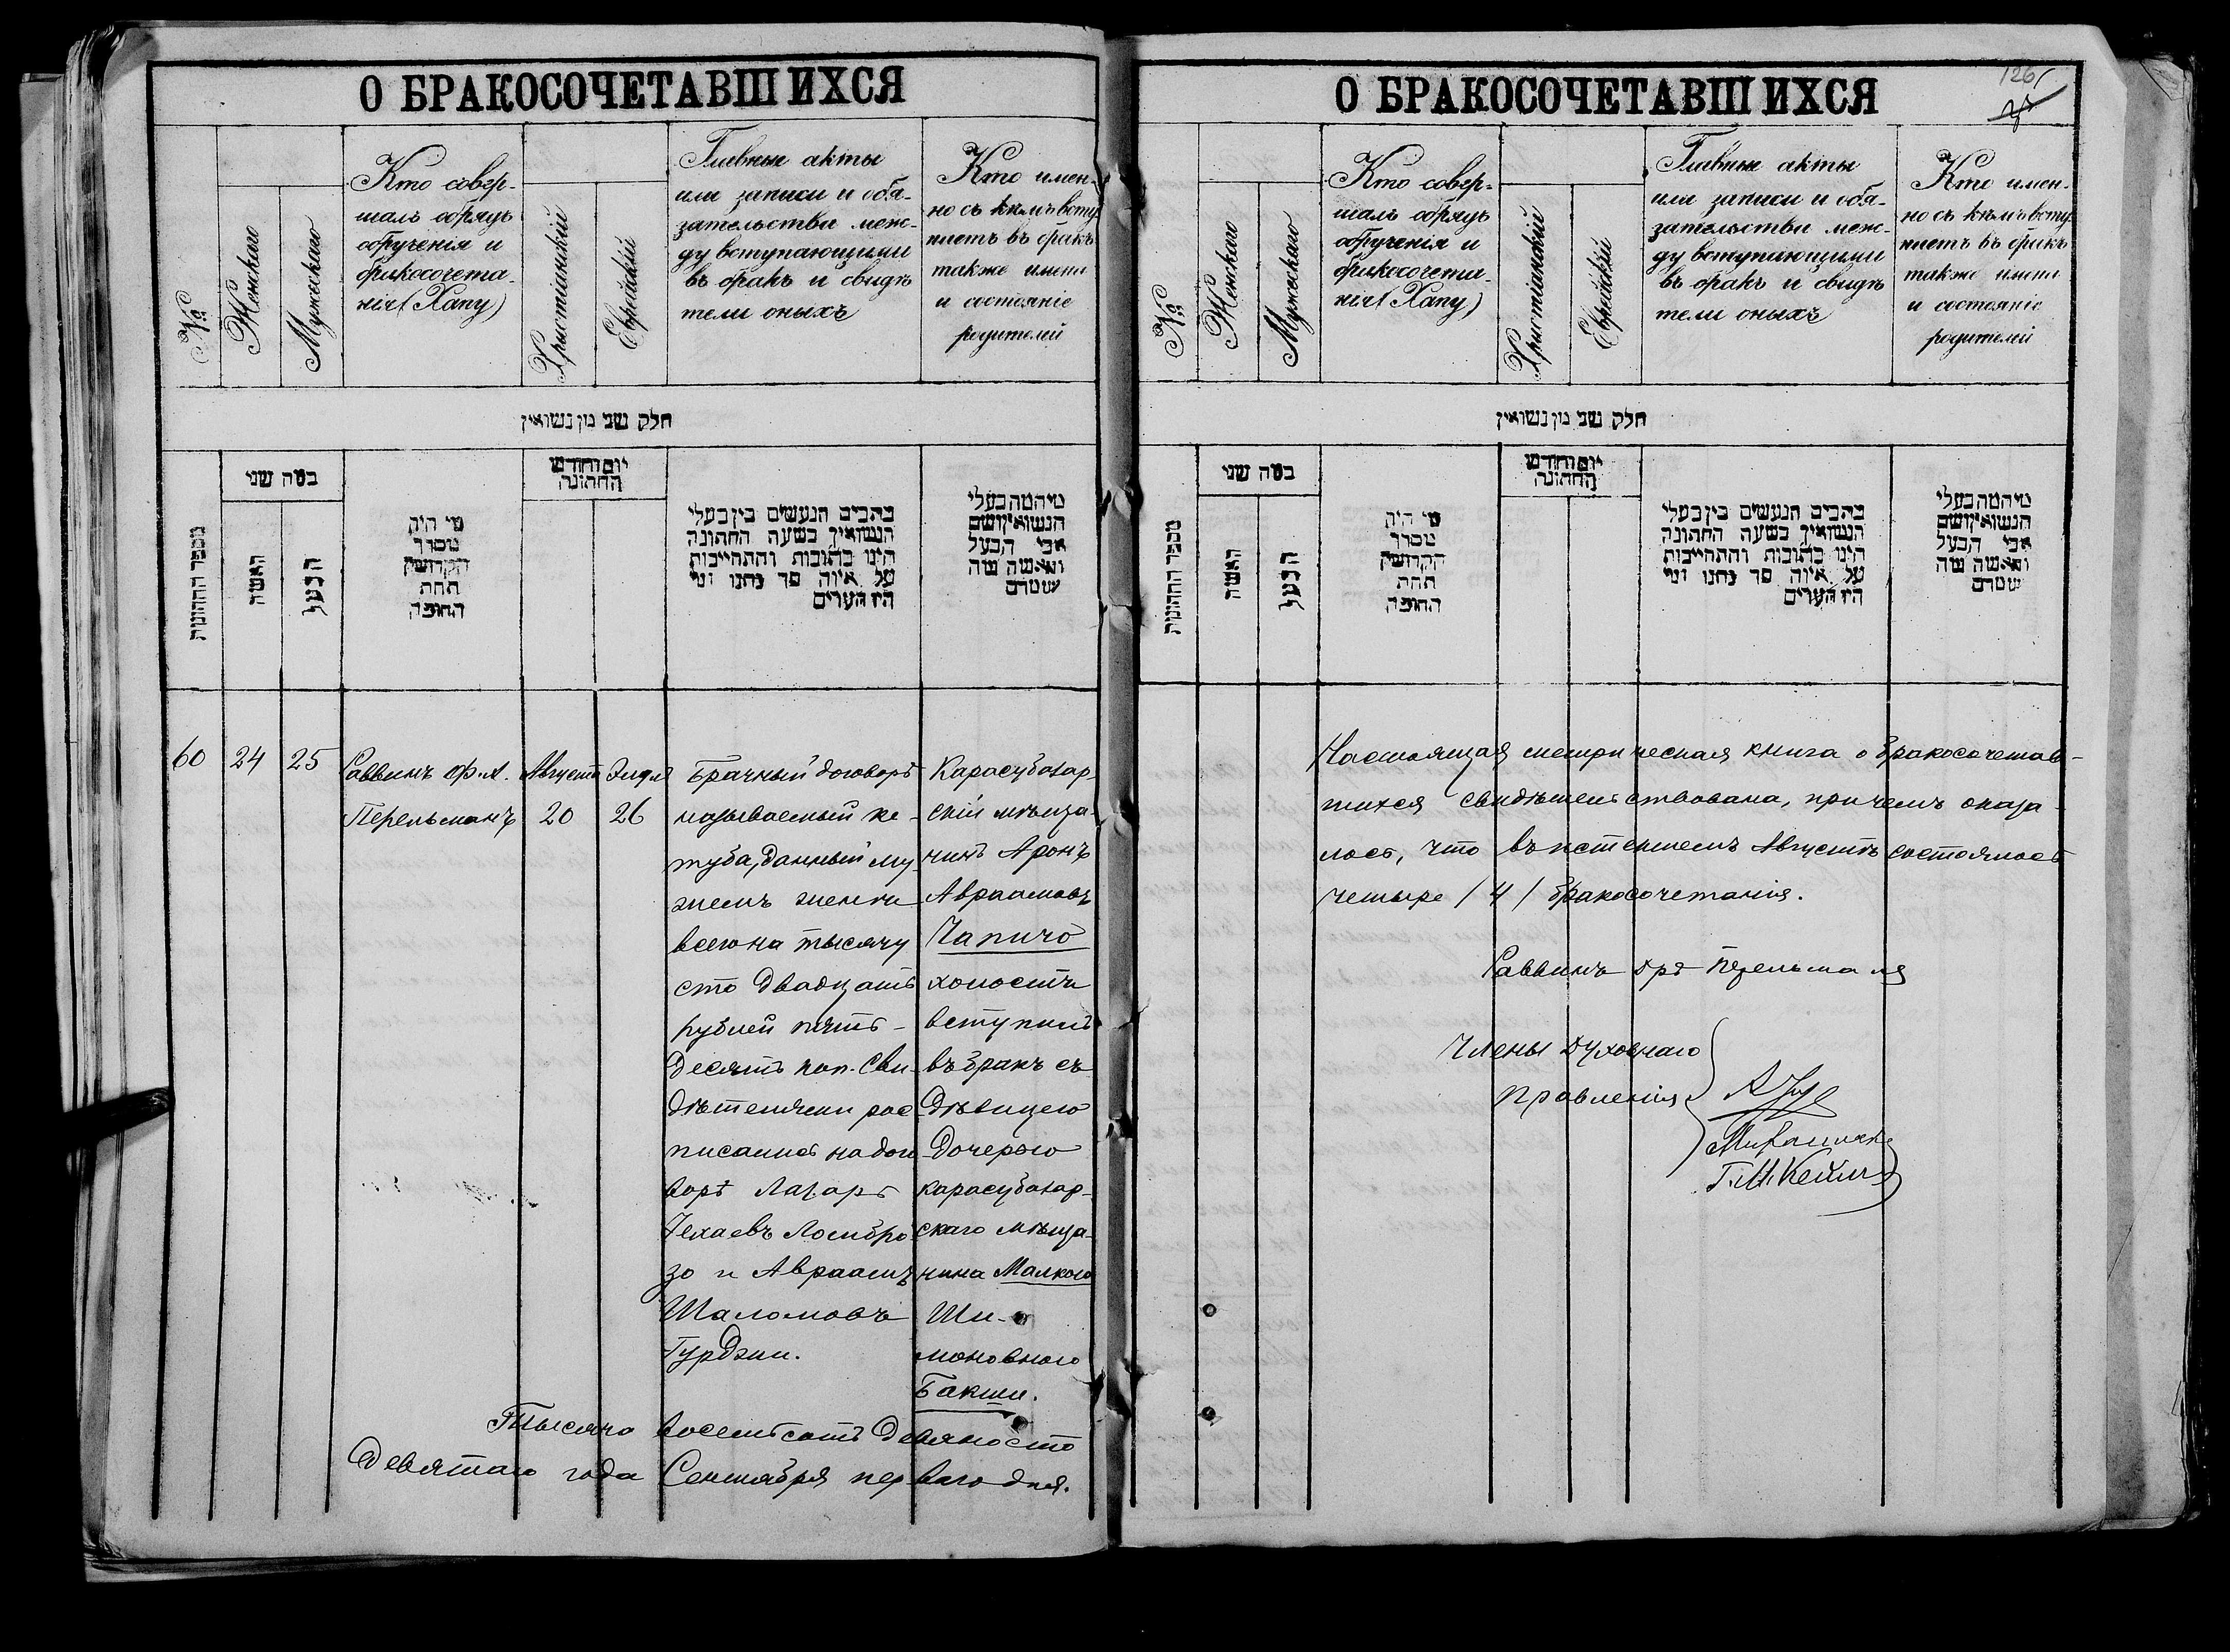 О БРАКОСОЧЕТАВШИХСЯ
№
Женскаго
Мужескаго
Кто совер-
шалъ обрядъ
обрученія и
бракосочета-
нія (Хапу)
Христіанскій
Еврейскій
Главные акты
или записи и обя-
зательства меж-
ду вступающими
въ бракъ и свидѣ
тели оныхъ
Кто имен-
но съ кѣмъ всту
паетъ въ бракъ
также имена
и состояніе
родителей
חלק שני מן נשואין
מספר החתונות
במה שני
האשה
הבעל
מי היה
מסדר
הקדושין
תחת
החופה
יום וחודש
החתונה
כתבים הנעשים בין בעלי
הנשואין בשעה החתונה
היינו כתובות והתחייבות
על איזה סך נתנו ומי
היו העדים
מי המה בעלי
הנשואין ושם
אבי הבעל
והאשה מה
שמם
60
24
25
Раввинъ Ф. А.
Перельманъ
Августа
20
Элуля
26
Брачный договоръ
называемый ке-
туба, данный му-
жемъ женѣ
всего на тысячу
сто двадцать
рублей пять-
десятъ коп. Сви-
дѣтелями рос
писались на дого
ворѣ Лазарь
Чехаевъ Ломбро
зо и Авраамъ
Шаломовъ
Гурджи.
Карасубазар-
скій мѣща-
нинъ Аронъ
Авраамовъ
Чапичо
холостъ
вступилъ
въ бракъ съ
дѣвицею
дочерью
карасубазар-
скаго мѣща-
нина Малкою
Ши-
моновною
Бакши.
Тысяча восемьсотъ девяносто
девятаго года Сентября перваго дня.
О БРАКОСОЧЕТАВШИХСЯ
126
№
Женскаго
Мужескаго
Кто совер-
шалъ обрядъ
обрученія и
бракосочета-
нія (Хапу)
Христіанскій
Еврейскій
Главные акты
или записи и обя-
зательства меж-
ду вступающими
въ бракъ и свидѣ
тели оныхъ
Кто имен-
но съ кѣмъ всту
паетъ въ бракъ
также имена
и состояніе
родителей
חלק שני מן נשואין
מספר החתונות
במה שני
האשה
הבעל
מי היה
מסדר
הקדושין
תחת
החופה
יום וחודש
החתונה
כתבים הנעשים בין בעלי
הנשואין בשעה החתונה
היינו כתובות והתחייבות
על איזה סך נתנו ומי
היו העדים
מי המה בעלי
הנשואין ושם
אבי הבעל
והאשה מה
שמם
Настоящая метрическая книга о бракосочетав-
шихся свидѣтельствована, причемъ оказа-
лось, что въ истекшемъ Августѣ состоялось
четыре / 4 / бракосочетанія.
Раввинъ Ф. А. Перельманъ
Члены Духовнаго
Правленія